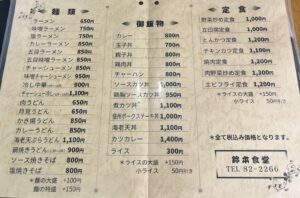 麺類
ラーメン 650円
味噌ラーメン 750円
塩ラーメン 750円
カレーラーメン 850円
五目ラーメン 850円
五目味噌ラーメン 950円
チャーシューメン 850円
味噌チャーシューメン 950円
冷し中華 900円
肉うどん 850円
月見うどん 650円
かき揚うどん 850円
カレーうどん 850円
海老天ぷらうどん 1,100円
鍋焼きうどん 1,100円
ソース焼きそば 800円
塩焼きそば 800円
*麺の大盛 +100円
麺の特盛 +150円
御飯物
カレー 800円
玉子丼 700円
親子丼 800円
豚丼 900円
鶏丼 900円
焼肉丼 900円
チャーハン 800円
ソースカツ丼 950円
鶏胸ソースカツ丼 950円
煮カツ丼 1,100円
海老天丼 1,150円
カツカレー 1,400円
ライス 300円
*ライスの大盛 +150円
小ライス 50円引き
定食
野菜炒め定食 1,100円
立田揚定食 1,100円
とんかつ定食 1,100円
チキンカツ定食 1,100円
焼肉定食 1,100円
肉野菜炒め定食 1,200円
エビフライ定食 1,200円
*ライスの大盛 +150円
小ライス 50円引き
*全て税込み価格となります。
鈴木食堂
TEL 82-2266